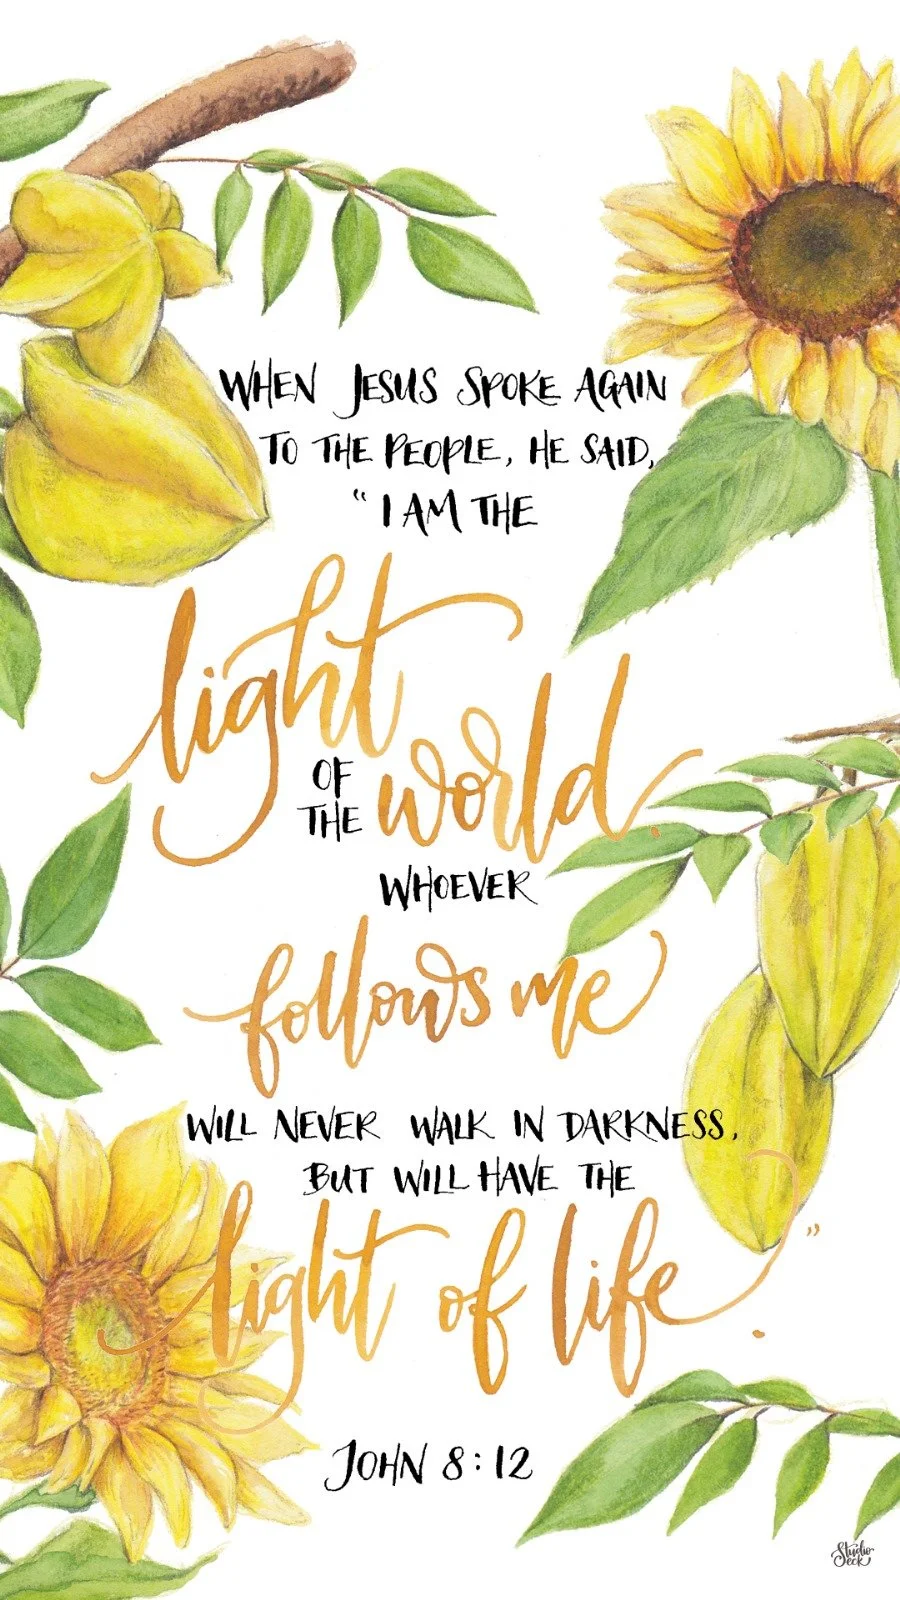 WHEN JESUS SPOKE AGAIN
TO THE PEOPLE, HE SAID,
“I AM THE
light
OF
THE world.
WHOEVER
follows me
WILL NEVER WALK IN DARKNESS,
BUT WILL HAVE THE
light of life.”
JOHN 8:12
Studio
Eck